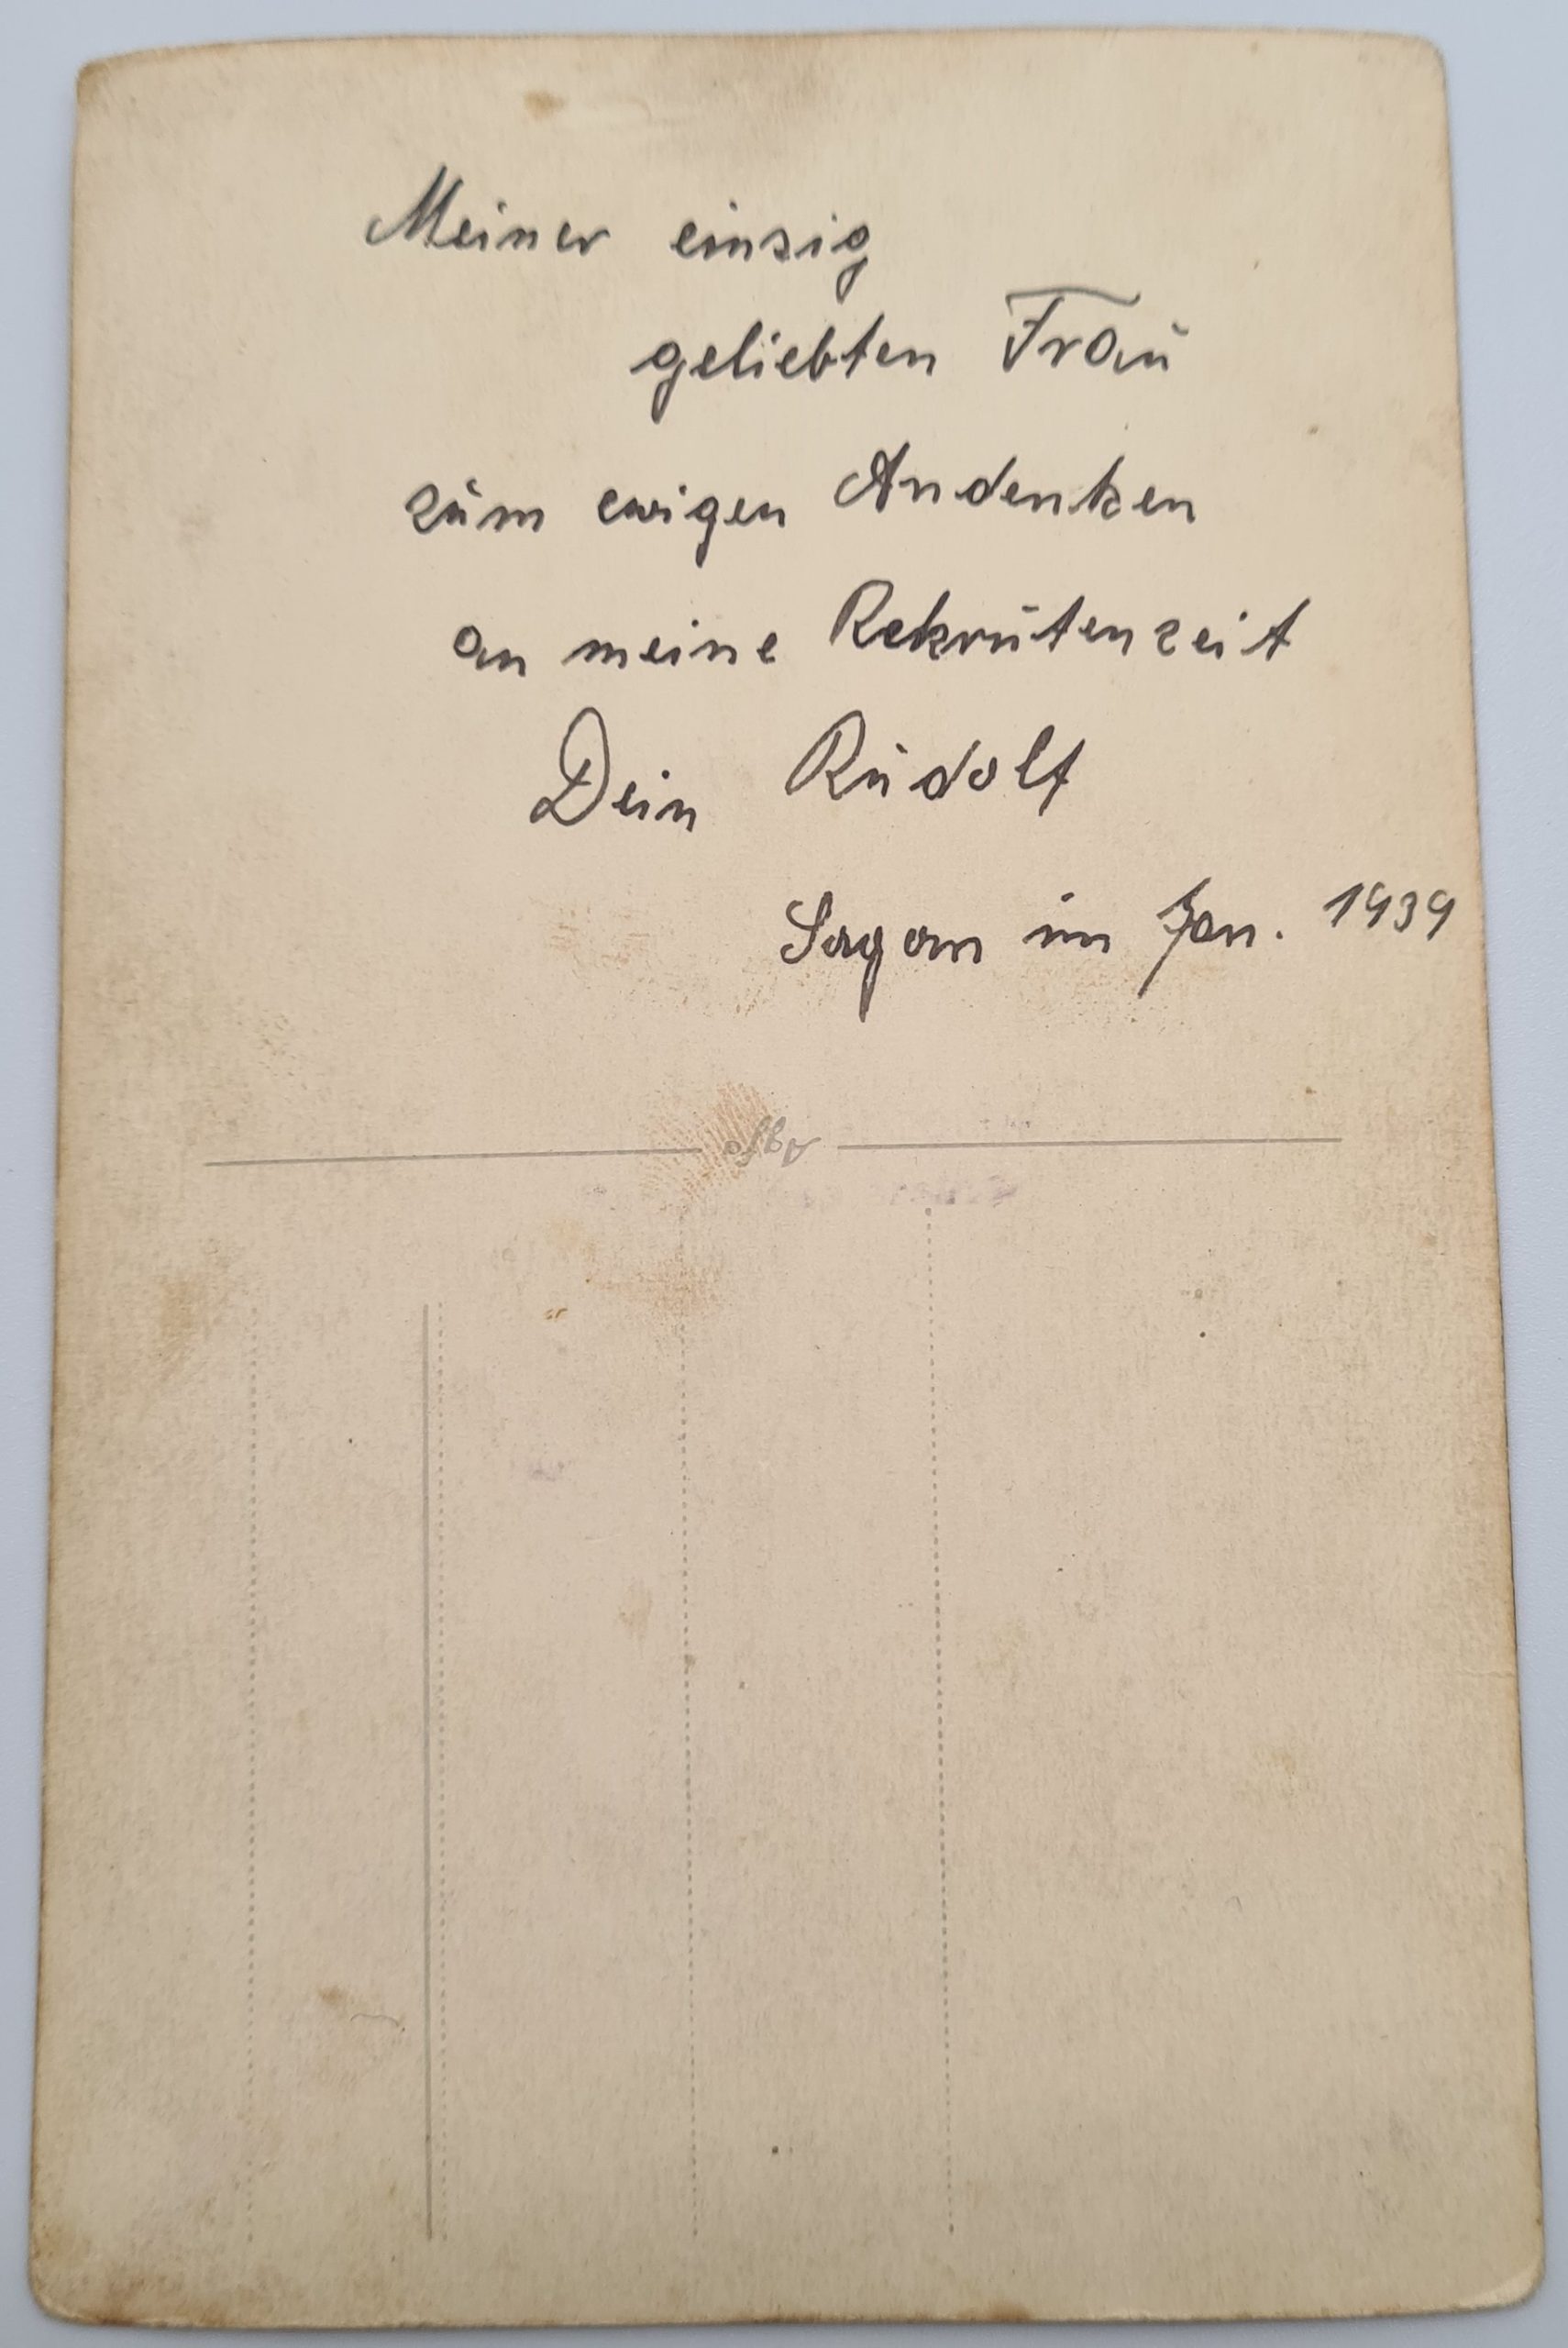 Meiner einzig
geliebten Frau
zum ewigen Andenken
an meine Rekrutenzeit
Dein Rudolf
Sagan im Jan. 1939
Agfa